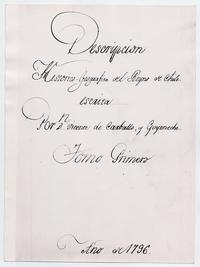 Descripcion
Historico Geografica del Reyno de Chile
escrita
Por Dn Vicente de Carballo, y Goyeneche
Tomo Primero
Año de 1796.